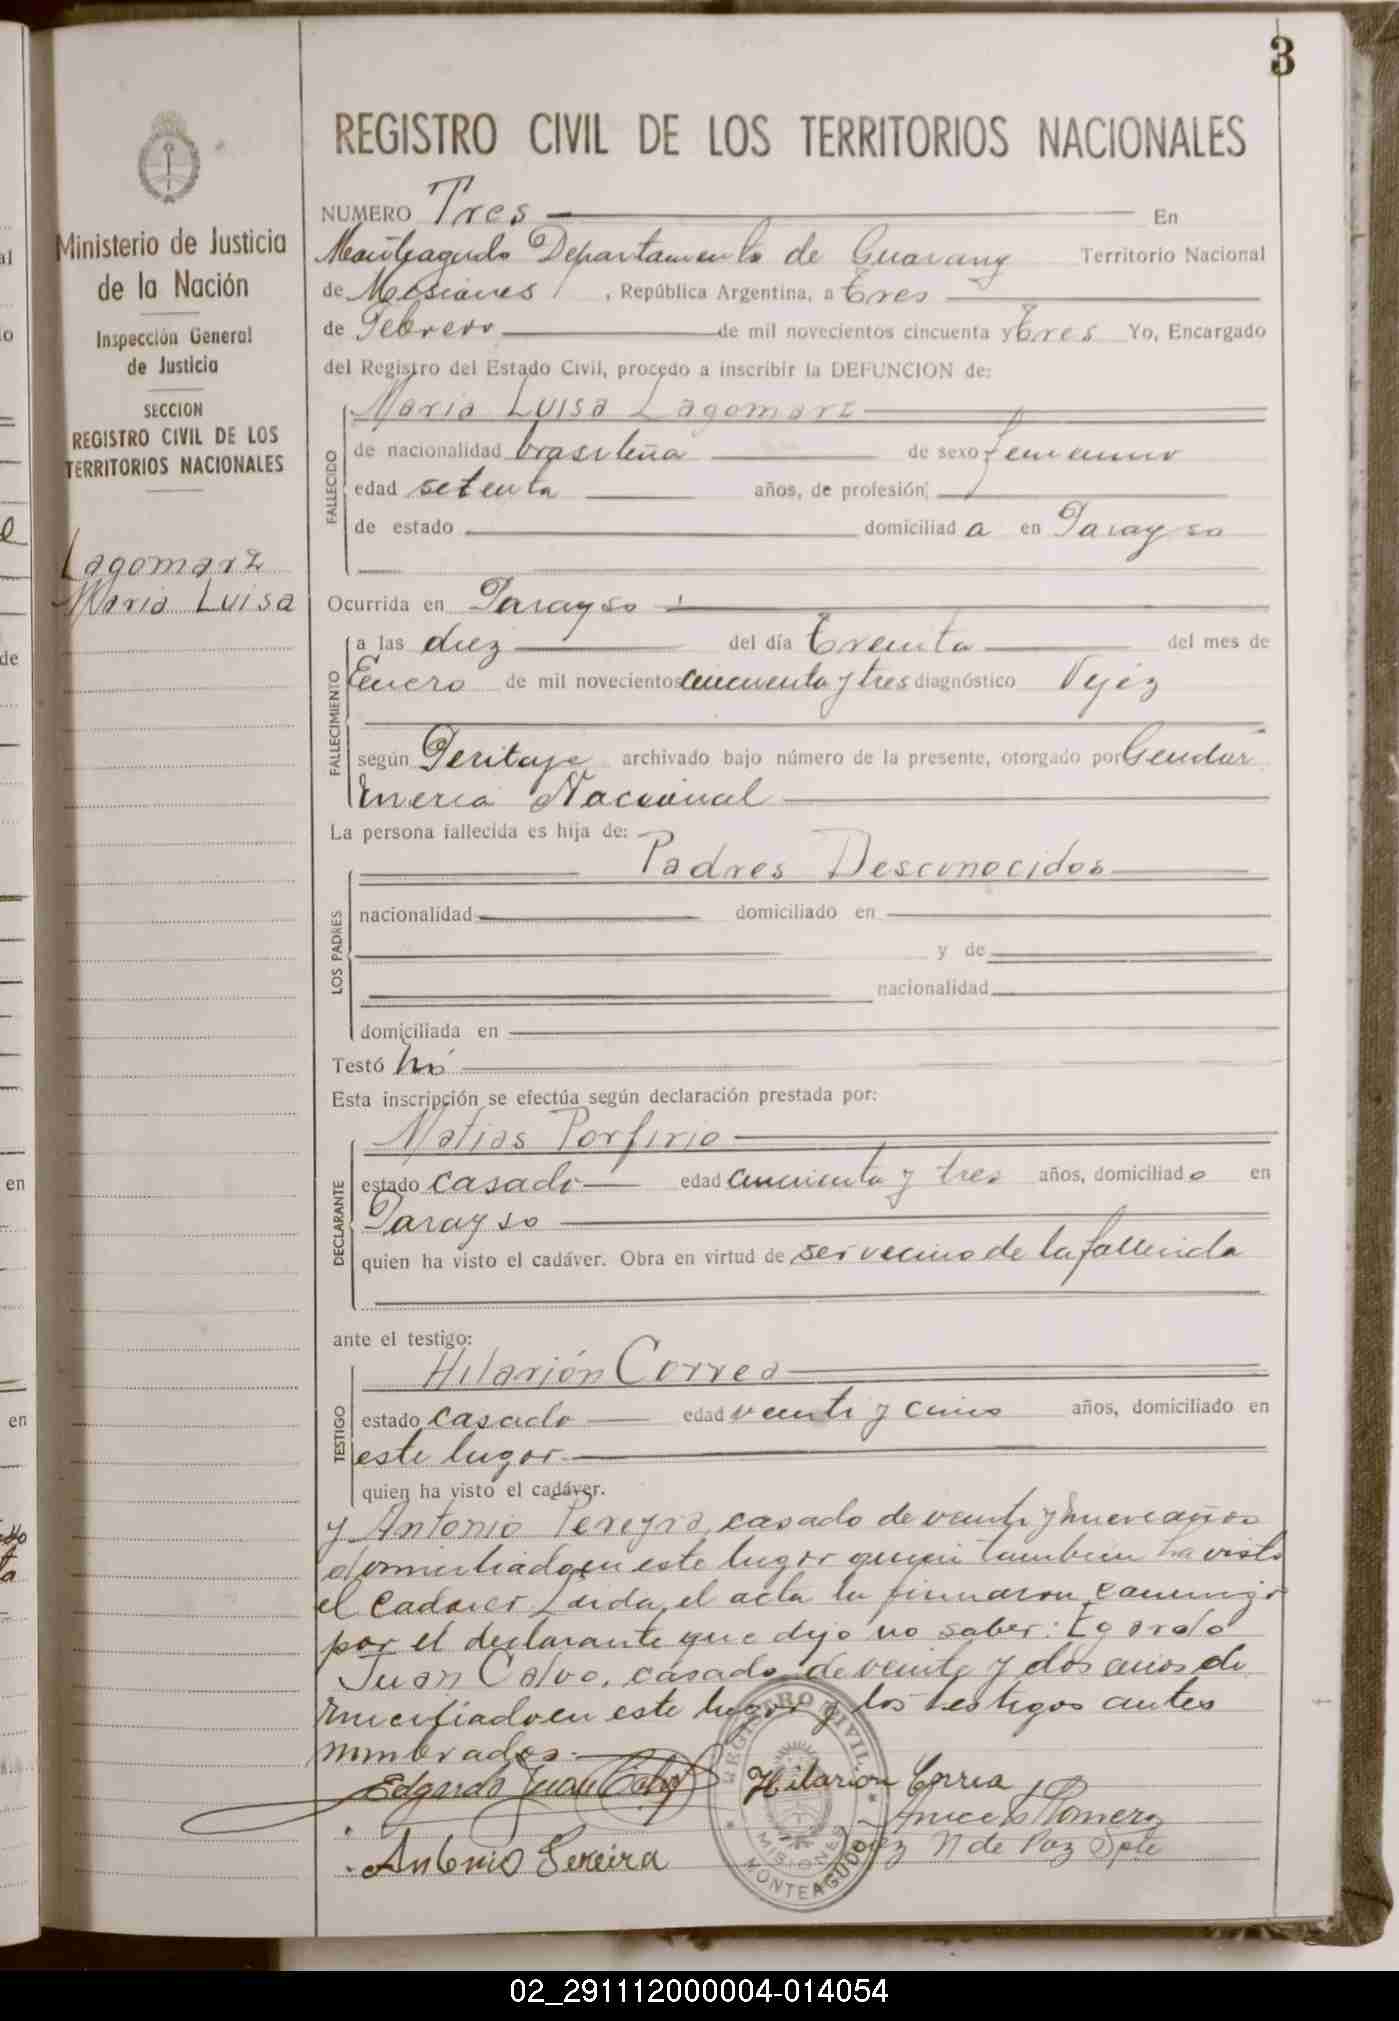 3
REGISTRO CIVIL DE LOS TERRITORIOS NACIONALES
Ministerio de Justicia
de la Nación
Inspección General
de Justicia
SECCION
REGISTRO CIVIL DE LOS
TERRITORIOS NACIONALES
Lagomarz
Maria Luisa
NUMERO Tres En
Monteagudo Departamento de Guarany Territorio Nacional
de Misiones, República Argentina, a tres
de Febrero de mil novecientos cincuenta y tres Yo, Encargado
del Registro del Estado Civil, procedo a inscribir la DEFUNCION de:
Maria Luisa Lagomarz
FALLECIDO
de nacionalidad brasileña de sexo femenino
edad setenta años, de profesión
de estado domiciliad a en Parayso
Ocurrida en Parayso
FALLECIMIENTO
a las diez del día treinta del mes de
Enero de mil novecientos cincuenta y tres diagnóstico Vejez
según Peritaje archivado bajo número de la presente, otorgado por Gendar
meria Nacional
La persona fallecida es hija de:
Padres Desconocidos
LOS PADRES
nacionalidad domiciliado en
y de
nacionalidad
domiciliada en
Testó no
Esta inscripción se efectúa según declaración prestada por:
Matias Porfirio
DECLARANTE
estado casado edad cincuenta y tres años, domiciliado en
Parayso
quien ha visto el cadáver. Obra en virtud de ser vecino de la fallecida
ante el testigo:
Hilarión Correa
TESTIGO
estado casado edad veinti y cinco años, domiciliado en
este lugar
quien ha visto el cadáver.
y Antonio Pereyra, casado de veinti y nueve años
domiciliado en este lugar quien tambien ha visto
el cadaver Leida el acta la firmaron conmigo
por el declarante que dijo no saber: Egardo
Juan Calvo, casado de veinte y dos años do
miciliado en este lugar y los testigos antes
nombrados.
Edgardo Juan Calvo Hilarion Correa
Romero
Antonio Pereira Juez N de Paz Sple
REGISTRO CIVIL
MISIONES
MONTEAGUDO
02_291112000004-014054